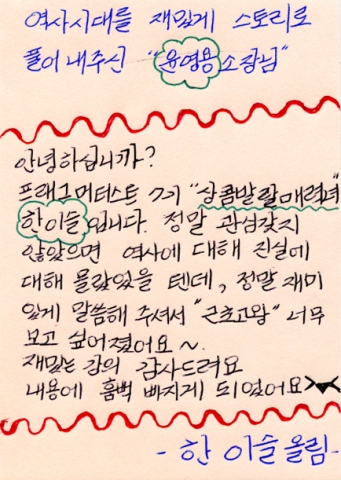 역사시대를 재밌게 스토리로
풀어 내주신 "윤영용소장님"
안녕하십니까?
프래그머티스트 7기 "상콤발랄매력녀"
한이슬입니다. 정말 관심갖지
않았으면 역사에 대해 진실에
대해 몰랐었을 텐데, 정말 재미
있게 말씀해 주셔서 "근초고왕" 너무
보고 싶어졌어요~.
재밌는 강의 감사드려요
내용에 흠뻑 빠지게 되었어요
- 한 이슬 올림-